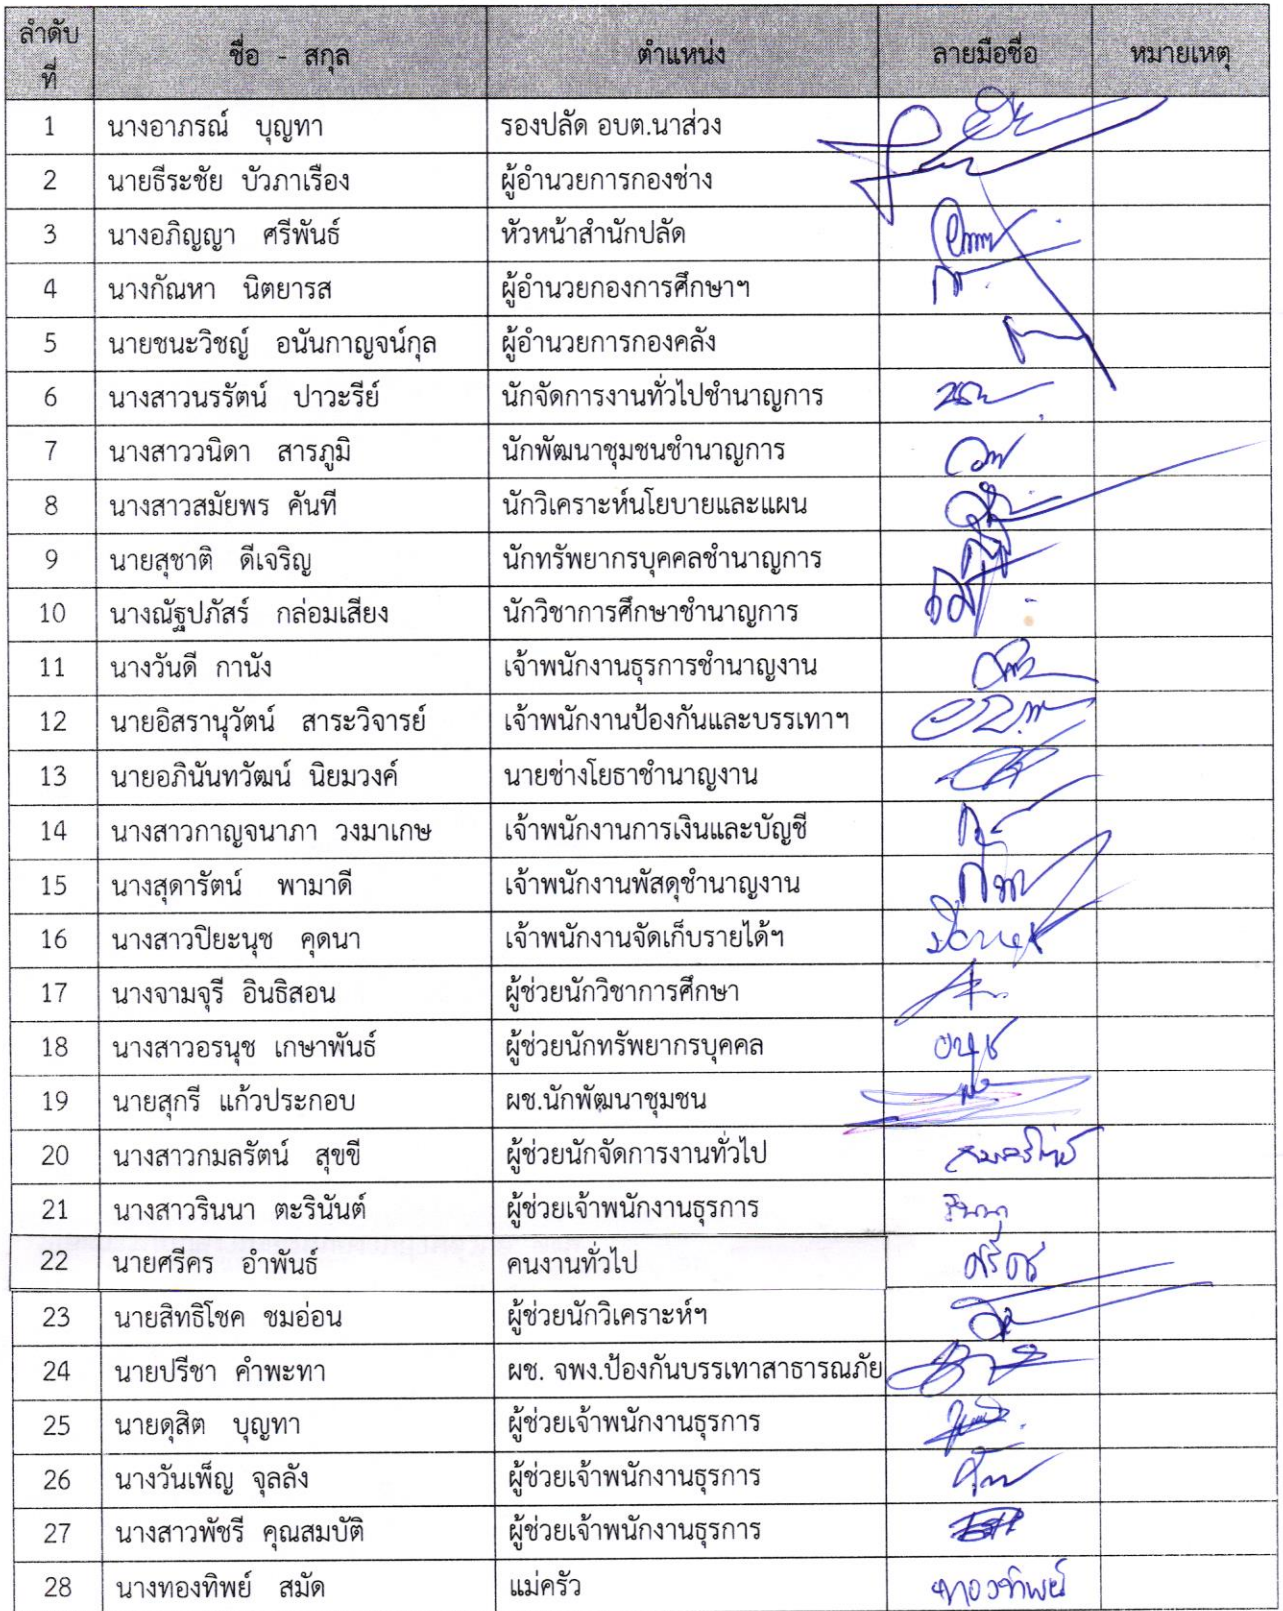 ลำดับที่ ชื่อ - สกุล ตำแหน่ง ลายมือชื่อ หมายเหตุ
1 นางอาภรณ์ บุญทา รองปลัด อบต.นาส่วง
2 นายธีระชัย บัวภาเรือง ผู้อำนวยการกองช่าง
3 นางอภิญญา ศรีพันธ์ หัวหน้าสำนักปลัด
4 นางกัณหา นิตยารส ผู้อำนวยกองการศึกษาฯ
5 นายชนะวิชญ์ อนันกาญจน์กุล ผู้อำนวยการกองคลัง
6 นางสาวนรรัตน์ ปาวะรีย์ นักจัดการงานทั่วไปชำนาญการ
7 นางสาววนิดา สารภูมิ นักพัฒนาชุมชนชำนาญการ
8 นางสาวสมัยพร คันที นักวิเคราะห์นโยบายและแผน
9 นายสุชาติ ดีเจริญ นักทรัพยากรบุคคลชำนาญการ
10 นางณัฐปภัสร์ กล่อมเสียง นักวิชาการศึกษาชำนาญการ
11 นางวันดี กานัง เจ้าพนักงานธุรการชำนาญงาน
12 นายอิสรานุวัตน์ สาระวิจารย์ เจ้าพนักงานป้องกันและบรรเทาฯ
13 นายอภินันทวัฒน์ นิยมวงค์ นายช่างโยธาชำนาญงาน
14 นางสาวกาญจนาภา วงมาเกษ เจ้าพนักงานการเงินและบัญชี
15 นางสุดารัตน์ พามาดี เจ้าพนักงานพัสดุชำนาญงาน
16 นางสาวปิยะนุช คุดนา เจ้าพนักงานจัดเก็บรายได้ฯ
17 นางจามจุรี อินธิสอน ผู้ช่วยนักวิชาการศึกษา
18 นางสาวอรนุช เกษาพันธ์ ผู้ช่วยนักทรัพยากรบุคคล
19 นายสุกรี แก้วประกอบ ผช.นักพัฒนาชุมชน
20 นางสาวกมลรัตน์ สุขขี ผู้ช่วยนักจัดการงานทั่วไป
21 นางสาวรินนา ตะรินันต์ ผู้ช่วยเจ้าพนักงานธุรการ
22 นายศรีคร อำพันธ์ คนงานทั่วไป
23 นายสิทธิโชค ชมอ่อน ผู้ช่วยนักวิเคราะห์ฯ
24 นายปรีชา คำพะทา ผช. จพง.ป้องกันบรรเทาสาธารณภัย
25 นายดุสิต บุญทา ผู้ช่วยเจ้าพนักงานธุรการ
26 นางวันเพ็ญ จุลลัง ผู้ช่วยเจ้าพนักงานธุรการ
27 นางสาวพัชรี คุณสมบัติ ผู้ช่วยเจ้าพนักงานธุรการ
28 นางทองทิพย์ สมัด แม่ครัว ทองทิพย์